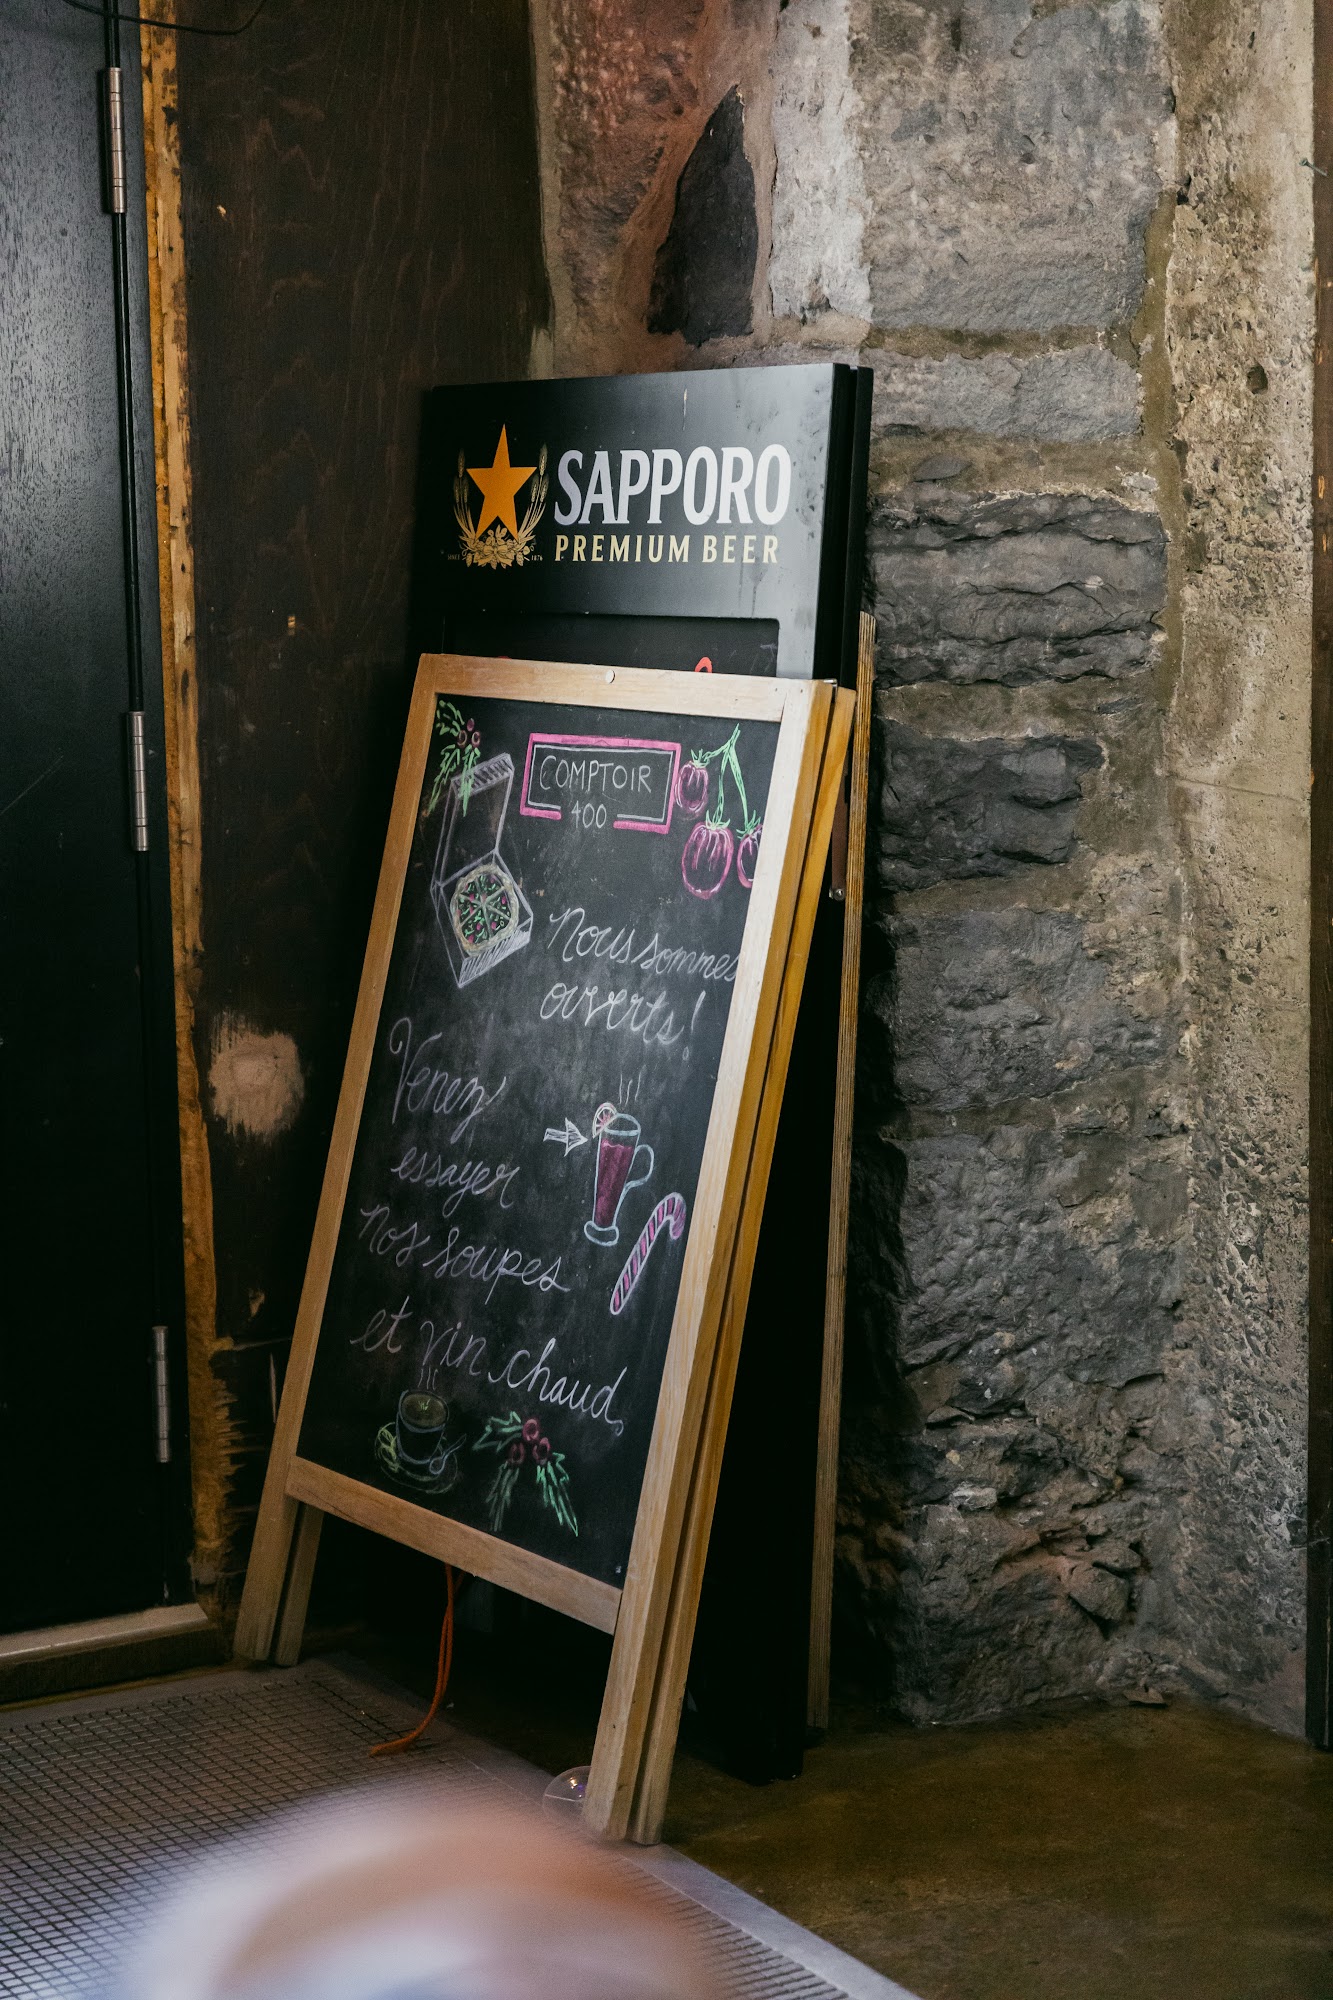 SAPPORO
PREMIUM BEER
SINCE 1876
COMPTOIR
400
Nous sommes
ouverts!
Venez
essayer
nos soupes
et vin chaud